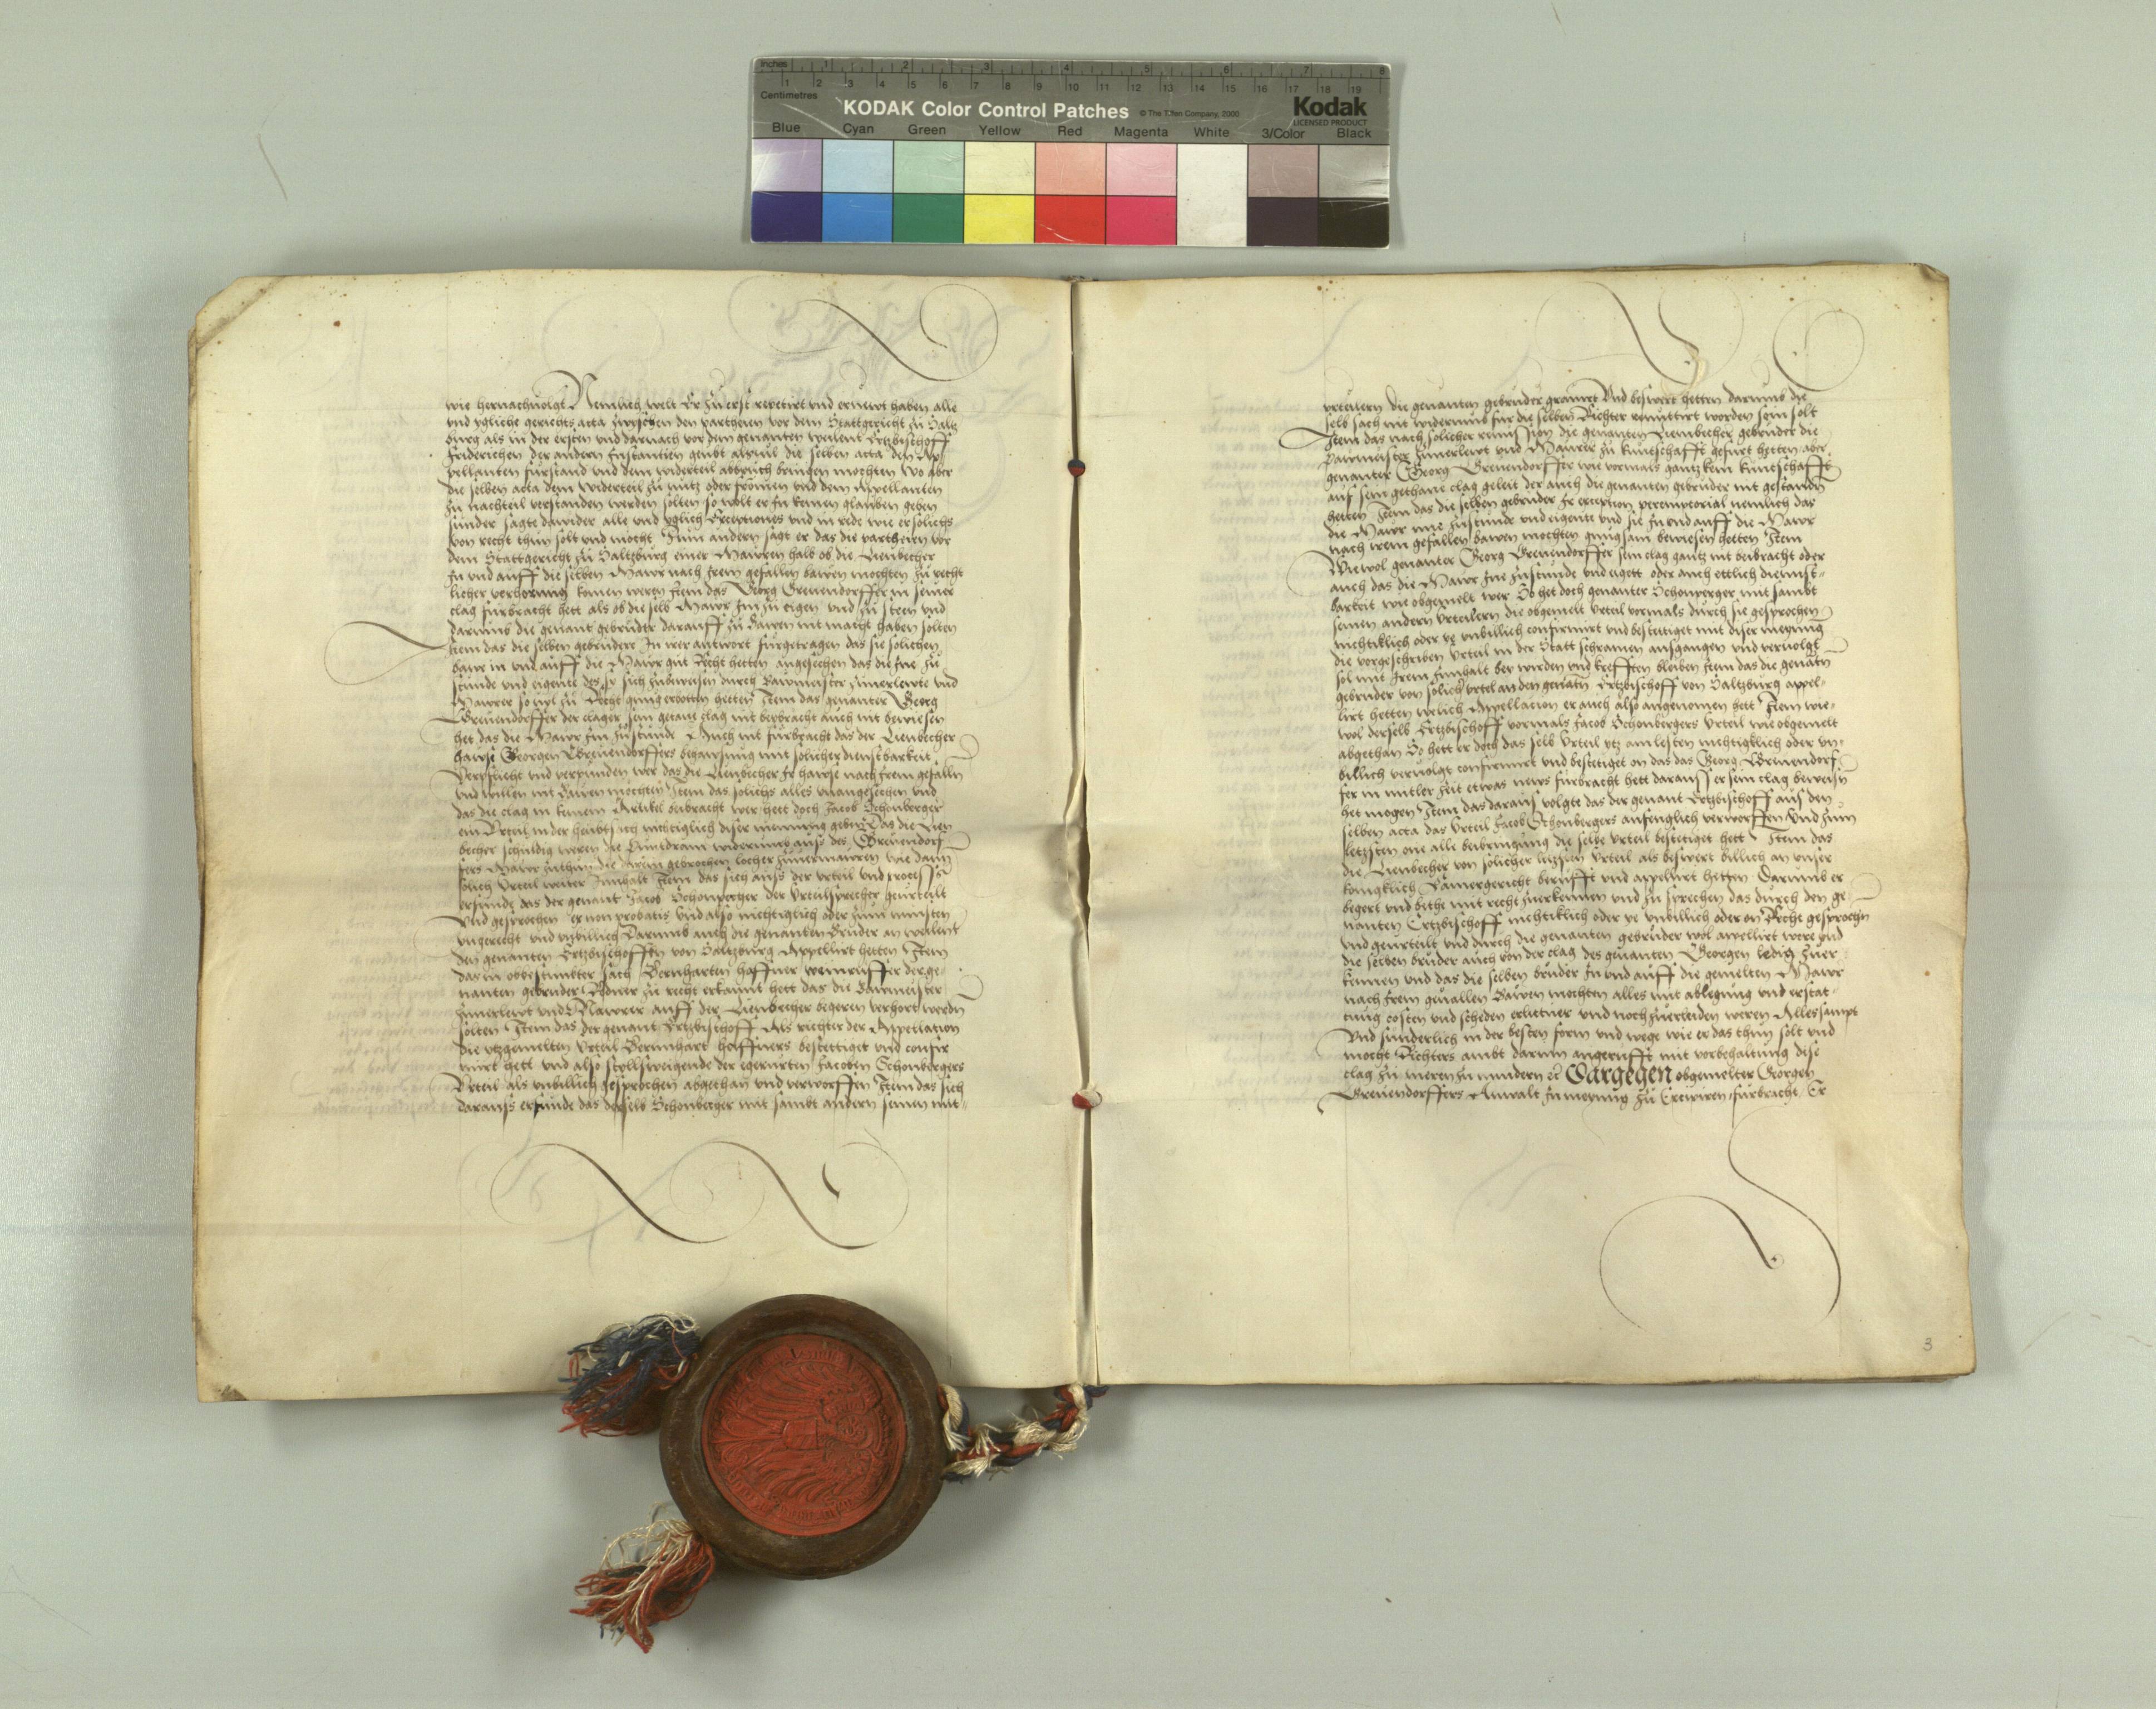 Inches 1 2 3 4 5 6 7 8
Centimetres 1 2 3 4 5 6 7 8 9 10 11 12 13 14 15 16 17 18 19
KODAK Color Control Patches © The Tiffen Company, 2000 Kodak
LICENSED PRODUCT
Blue Cyan Green Yellow Red Magenta White 3/Color Black
wie hernachuolgt Nemlich welt Er zu erst repetirt vnd ernewt haben alle
vnd ygliche gerichts acta zwischen den partheien vor dem Stattgericht zu Saltz
burg als in der ersten vnd darnach vor dem genanten weilent Ertzbischoff
Friderichen der andern Instantien geubt alsuil die selben acta den Ap
pellanten furstand vnd dem widerteil abbruch bringen mochten Wo aber
die selben acta dem widerteil zu nutz oder fromen vnd dem Appellanten
zu nachteil verstanden werden solten so wolt er In keinen glauben geben
sunder sagte dawider alle vnd yglich Exceptiones vnd in rede wie er solichs
von recht thun solt vnd mocht Zum andern sagt er das die partheien vor
dem Stattgericht zu Saltzburg einer Mawren halb ob die Lienbecher
In vnd auff die selben Mawr nach Irem gefallen bawen mochten zu recht
licher verhorung komen weren Item das Georg Greuendorffer in seiner
clag furbracht hett als ob die selb Mawr Im zu eigen vnd zu steen vnd
darumb die genant gebruder darauff zu Bawen nit macht haben solten
Item das die selben gebrudere In irer antwort furgetragen das sie solichen
bawe in vnd auff die Mawr gut Recht hetten angesechen das die Ine zu
stunde vnd eigente des sich zubeweisen durch Bawmeister zimerlewte vnd
Maurer so uyl zu Recht gnug erbotten hetten Item das genanter Georg
Greuendorffer der clager sein getane clag nit beybracht auch nit bewisen
het das die Mawr Im zustunde Auch nit furbracht das der Lienbecher
hawse Georgen Greuendorffers behawsung mit solicher dienstbarkeit
Verpflicht vnd verpunden wer das die Lienbecher Ir hawse nach Irem gefalln
vnd willen nit Bawen mochten Item das solichs alles vnangesechen vnd
das die clag in keinem Artikel beibracht wer hett doch Jacob Schonberger
ein Vrteil in der haubtsach nichtiglich diser meinung geben Das die Lien
becher schuldig weren die widerumb auss des Greuendorf
fers Mawr zuthun die darein gebrochen locher zuuermawren wie dann
solich Vrteil weiter Innhalt Item das sich auss der vrteil vnd process
erfunde das der genant Jacob Schonperger der Vrteilsprecher geurteilt
Vnd gesprochen er non probatis vnd also nichtiglich oder zum minsten
vngerecht vnd vnbillich Darumb auch die genanten Bruder an weilent
den genanten Ertzbischoffen von Saltzburg Appellirt hetten Item
das in obbestimbter sach Bernharten haffner weinruffer der ge
nanten gebruder Redner zu recht erkannt hett das die Bawmeister
zimerlewt vnd Mawrer auff der Lienbecher begeren verhort werdn
solten Item das der genant Ertzbischoff Als richter der Appellation
die ytzgemelten Vrteil Bernhart haffners bestettiget vnd confir
mirt hett vnd also stylsweigende der egerurten Jacoben Schonbergers
Vrteil als vnbillich gesprochen abgethan vnd verworffen Item das sich
darauss erfunde das derselb Schonberger mit sambt andern seinen mit
vrteilern die genanten gebruder grauirt Vnd beswert hetten darumb die
selb sach nit widerumb fur die selben Richter remittirt worden sein solt
Item das nach solicher remission die genanten Lienbecher gebruder die
Pawmeister zimerlewt vnd Mawrer zu kuntschafft gefurt hetten aber
genanter Georg Greuendorffer wie vormals gantz kein kuntschafft
auf sein gethane clag geleit der auch die genanten gebruder nit gestandn
hetten Item das die selben gebruder Ir exception peremptorial nemlich das
die Mawr ine zustunde vnd eigente vnd sie In vnd auff die Mawr
nach irem gefallen bawen mochten gnugsam bewisen hetten Item
Wiewol genanter Georg Greuendorffer sein clag gantz nit beibracht oder
auch das die Mawr Ine zustunde vnd eigett oder auch ettlich dienst
barkeit wie obgemelt wer So het doch genanter Schonperger mit sambt
seinen andern Vrteilern die obgemelt Vrteil vormals durch sie gesprochen
nichtiklich oder ye vnbillich confirmirt vnd bestettiget mit diser meynung
die vorgeschriben Vrteil in der Statt schrannen ausgangen vnd veruolgt
sol mit Irem Innhalt bey wirden vnd krefften bleiben Item das die genantn
gebruder von solicher vrtel an den genantn Ertzbischoff von Saltzburg appel
lirt hetten welich Appellacion er auch also angenomen hett Item wie
wol derselb Ertzbischoff vormals Jacob Schonbergers Vrteil wie obgemelt
abgethan So hett er doch das selb Vrteil ytz am lesten nichtigklich oder vn
billich veruolgt confirmirt vnd bestetiget on das das Georg Greuendorf
fer in mitler zeit etwas news furbracht hett darauss er sein clag beweisn
het mogen Item das daraus volgte das der genant Ertzbischoff aus den
selben acta das Vrteil Jacob Schonbergers anfenglich verworffen Vnd zum
letzsten one alle beibringung die selbe Vrteil bestettiget hett Item das
die Lienbecher von solicher letzsten Vrteil als beswert billich an vnser
konigklich Camergericht berufft vnd appelirt hetten Darumb er
begert vnd bethe mit recht zuerkennen vnd zu sprechen das durch den ge
nanten Ertzbischoff nichtiklich oder ye vnbillich oder on Recht gesprochn
vnd geurteilt vnd durch die genanten gebruder wol appellirt were vnd
die selben bruder auch von der clag des genanten Georgen ledig zuer
kennen vnd das die selben bruder In vnd auff die gemelten Mawr
nach Irem geuallen Bawen mochten alles mit ablegung vnd erstat
tung costen vnd scheden erlittner vnd noch zuerleiden weren Alles sampt
Vnd sunderlich in der besten form vnd wege wie er das thun solt vnd
mocht Richters ambt darinn angerufft mit vorbehaltung dise
clag zu meren zu mindern etc Dargegen obgemelter Georgen
Greuendorffers Anwalt In meynung zu Excipiren furbracht Er
3